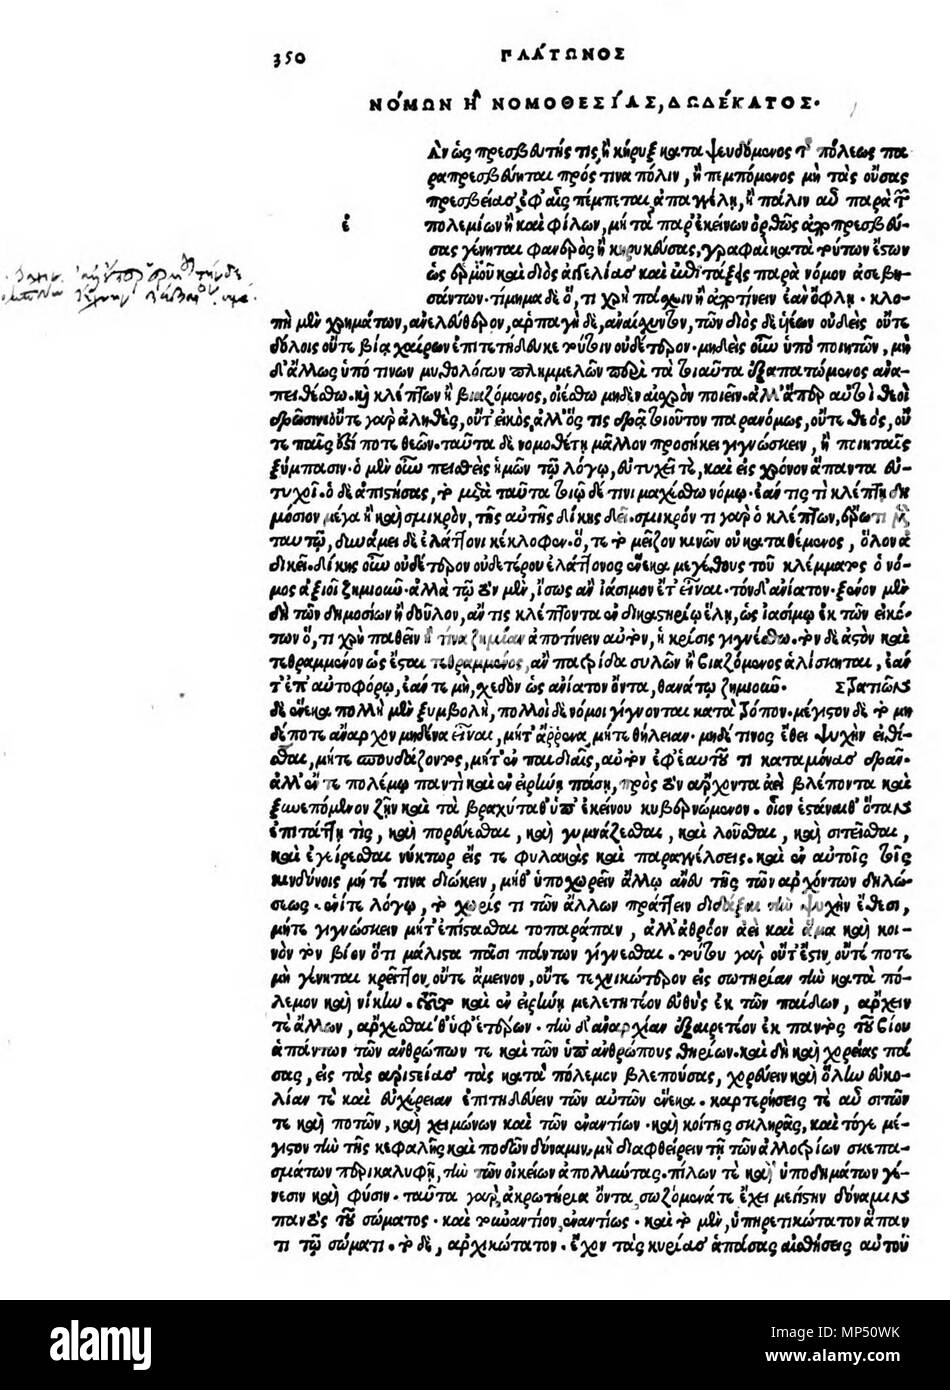 350 ΠΛΆΤΩΝΟΣ
ΝΌΜΩΝ Ἢ ΝΟΜΟΘΕΣΊΑΣ, ΔΩΔΈΚΑΤΟΣ.
Ὰν ὡς πρεσβευτής τις, ἢ κήρυξ καταψευδόμενος τῆς πόλεως πα
ραπρεσβεύηται πρός τινα πόλιν, ἢ πεμπόμενος μὴ τὰς οὔσας
πρεσβείας ἐφ' αἷς πέμπεται, ἀπαγγέλῃ, ἢ πάλιν αὖ παρὰ τῶν
ἐ
πολεμίων ἢ καὶ φίλων, μὴ τὰ παρ' ἐκείνων ὀρθῶς ἀποπρεσβεύ-
σας γένηται φανερὸς ἢ κηρυκεύσας, γραφαὶ κατὰ τούτων ἔστων
ὡς ἑρμοῦ καὶ διὸς ἀγγελίας καὶ ἐπιτάξεις παρὰ νόμον ἀσεβη-
σάντων. τίμημα δὲ ὅ, τι χρὴ πάσχειν ἢ ἀποτίνειν ἐὰν ὄφλῃ. κλο-
πὴ μὲν χρημάτων, ἀνελεύθερον, ἁρπαγὴ δὲ, ἀναίσχυντον, τῶν διὸς δὲ υἱέων οὐδεὶς οὔτε
δόλοις οὔτε βίᾳ χαίρων ἐπιτετήδευκε τούτοιν οὐδέτερον. μηδεὶς οὖν ὑπὸ ποιητῶν, μὴ
δ' ἄλλως ὑπό τινων μυθολόγων πλημμελῶν περὶ τὰ τοιαῦτα ἐξαπατώμενος ἀνα-
πειθέσθω. κἢ κλέπτων ἢ βιαζόμενος, οἰέσθω μηδὲν αἰσχρὸν ποιεῖν. ἀλλ' ἅπερ αὐτοὶ θεοὶ
δρῶσιν. οὔτε γὰρ ἀληθὲς, οὔτ' εἰκὸς, ἀλλ' ὅς τις δρᾷ τοιοῦτον παρανόμως, οὔτε θεὸς, οὔ
τε παῖς ἐστί ποτε θεῶν. ταῦτα δὲ νομοθέτῃ μᾶλλον προσήκει γιγνώσκειν, ἢ ποιηταῖς
ξύμπασιν. ὁ μὲν οὖν πεισθεὶς ἡμῶν τῷ λόγῳ, εὐτυχεῖ τὲ, καὶ εἰς χρόνον ἅπαντα εὐ-
τυχοῖ. ὁ δὲ ἀπιστήσας, τὸ μετὰ ταῦτα τοιῷδέ τινι μαχέσθω νόμῳ. ἐάν τις τὶ κλέπτῃ δη
μόσιον μέγα ἢ καὶ σμικρὸν, τῆς αὐτῆς δίκης δεῖ. σμικρόν τι γὰρ ὁ κλέπτων, ἔρωτι μὲν
ταυτῷ, δυνάμει δὲ ἐλάττονι κέκλοφεν. ὅ, τε τὸ μεῖζον κινῶν οὐ καταθέμενος, ὅλον ἀ
δικεῖ. δίκης οὖν οὐδέτερον οὐδετέρου ἐλάττονος ἕνεκα μεγέθους τοῦ κλέμματος ὁ νό-
μος ἀξιοῖ ζημιοῦν. ἀλλὰ τῷ τὸν μὲν, ἴσως ἂν ἰάσιμον ἔτ' εἶναι. τόνδ' ἀνίατον. ξένον μὲν
δὴ τῶν δημοσίων ἢ δοῦλον, ἄν τις κλέπτοντα ἐν δικαστηρίῳ ἕλῃ, ὡς ἰασίμῳ ἐκ τῶν εἰκό-
των ὅ, τι χρὴ παθεῖν ἢ τίνα ζημίαν ἀποτίνειν αὐτὸν, ἡ κρίσις γιγνέσθω. τὸν δὲ ἀστὸν καὶ
τεθραμμένον ὡς ἔσται τεθραμμένος, ἂν πατρίδα συλῶν ἢ βιαζόμενος ἁλίσκηται, ἐάν
τ' ἐπ' αὐτοφόρῳ, ἐάν τε μὴ, σχεδὸν ὡς ἀνίατον ὄντα, θανάτῳ ζημιοῦν. Στρατιῶν
δὲ ἕνεκα πολλὴ μὲν ξυμβολὴ, πολλοὶ δὲ νόμοι γίγνονται κατὰ τρόπον. μέγιστον δὲ τὸ μη
δέποτε ἄναρχον μηδένα εἶναι, μήτ' ἄρρενα, μήτε θήλειαν. μηδέ τινος ἔθει ψυχὴν εἰθί-
σθαι, μήτε σπουδάζοντος, μήτ' ἐν παιδιαῖς, αὐτὸν ἐφ' ἑαυτοῦ τι καταμόνας δρᾶν.
ἀλλ' ἔν τε πολέμῳ παντὶ καὶ ἐν εἰρήνῃ πάσῃ, πρὸς τὸν ἄρχοντα ἀεὶ βλέποντα καὶ
ξυνεπόμενον ζῇν καὶ τὰ βραχύταθ' ὑπ' ἐκείνου κυβερνώμενον. οἷον ἑστάναι θ' ὅταν
ἐπιτάττῃ τὶς, καὶ πορεύεσθαι, καὶ γυμνάζεσθαι, καὶ λοῦσθαι, καὶ σιτεῖσθαι,
καὶ ἐγείρεσθαι νύκτωρ εἴς τε φυλακὰς καὶ παραγγέλσεις. καὶ ἐν αὐτοῖς τοῖς
κινδύνοις μή τέ τινα διώκειν, μήθ' ὑποχωρεῖν ἄλλῳ ἄνευ τῆς τῶν ἀρχόντων δηλώ-
σεως. ἑνί τε λόγῳ, τὸ χωρίς τι τῶν ἄλλων πράττειν διδάξαι τὴν ψυχὴν ἔθεσι,
μήτε γιγνώσκειν μήτ' ἐπίστασθαι τοπαράπαν, ἀλλ' ἀθρόον ἀεὶ καὶ ἅμα καὶ κοι-
νὸν τὸν βίον ὅτι μάλιστα πᾶσι πάντων γίγνεσθαι. τούτου γὰρ οὔτ' ἔστιν, οὔτέ ποτε
μὴ γένηται κρεῖττον, οὔτε ἄμεινον, οὔτε τεχνικώτερον εἰς σωτηρίαν τὴν κατὰ πό-
λεμον καὶ νίκην. τοῦτο καὶ ἐν εἰρήνῃ μελετητέον εὐθὺς ἐκ τῶν παίδων, ἄρχειν
τὲ ἄλλων, ἄρχεσθαί θ' ὑφ' ἑτέρων. τὴν δ' ἀναρχίαν ἐξαιρετέον ἐκ παντὸς τοῦ βίου
ἁπάντων τῶν ἀνθρώπων τε καὶ τῶν ὑπ' ἀνθρώπους θηρίων. καὶ δὴ καὶ χορείας πά
σας, εἰς τὰς ἀριστείας τὰς κατὰ πόλεμον βλεπούσας, χορεύειν καὶ ὅλην εὐκο-
λίαν τὲ καὶ εὐχέρειαν ἐπιτηδεύειν τῶν αὐτῶν ἕνεκα. καρτερήσεις τὲ αὖ σιτῶν
τε καὶ ποτῶν, καὶ χειμώνων καὶ τῶν ἐναντίων. καὶ κοίτης σκληρᾶς, καὶ τόγε μέ-
γιστον τὴν τῆς κεφαλῆς καὶ ποδῶν δύναμιν, μὴ διαφθείρειν τῇ τῶν ἀλλοτρίων σκεπα-
σμάτων περικαλυφῇ, τὴν τῶν οἰκείων ἀπολλύντας. πίλων τὲ καὶ ὑποδημάτων γέ-
νεσιν καὶ φύσιν. ταῦτα γὰρ ἀκρωτήρια ὄντα, σωζόμενά τε ἔχει μεγίστην δύναμιν
παντὸς τοῦ σώματος. καὶ τοὐναντίον, ἐναντίως. καὶ τὸ μὲν, ὑπηρετικώτατον ἅπαν
τι τῷ σώματι. τὸ δὲ, ἀρχικώτατον. ἔχον τὰς κυρίας ἁπάσας αἰσθήσεις αὐτοῦ
alamy
Image ID: MP50WK
www.alamy.com